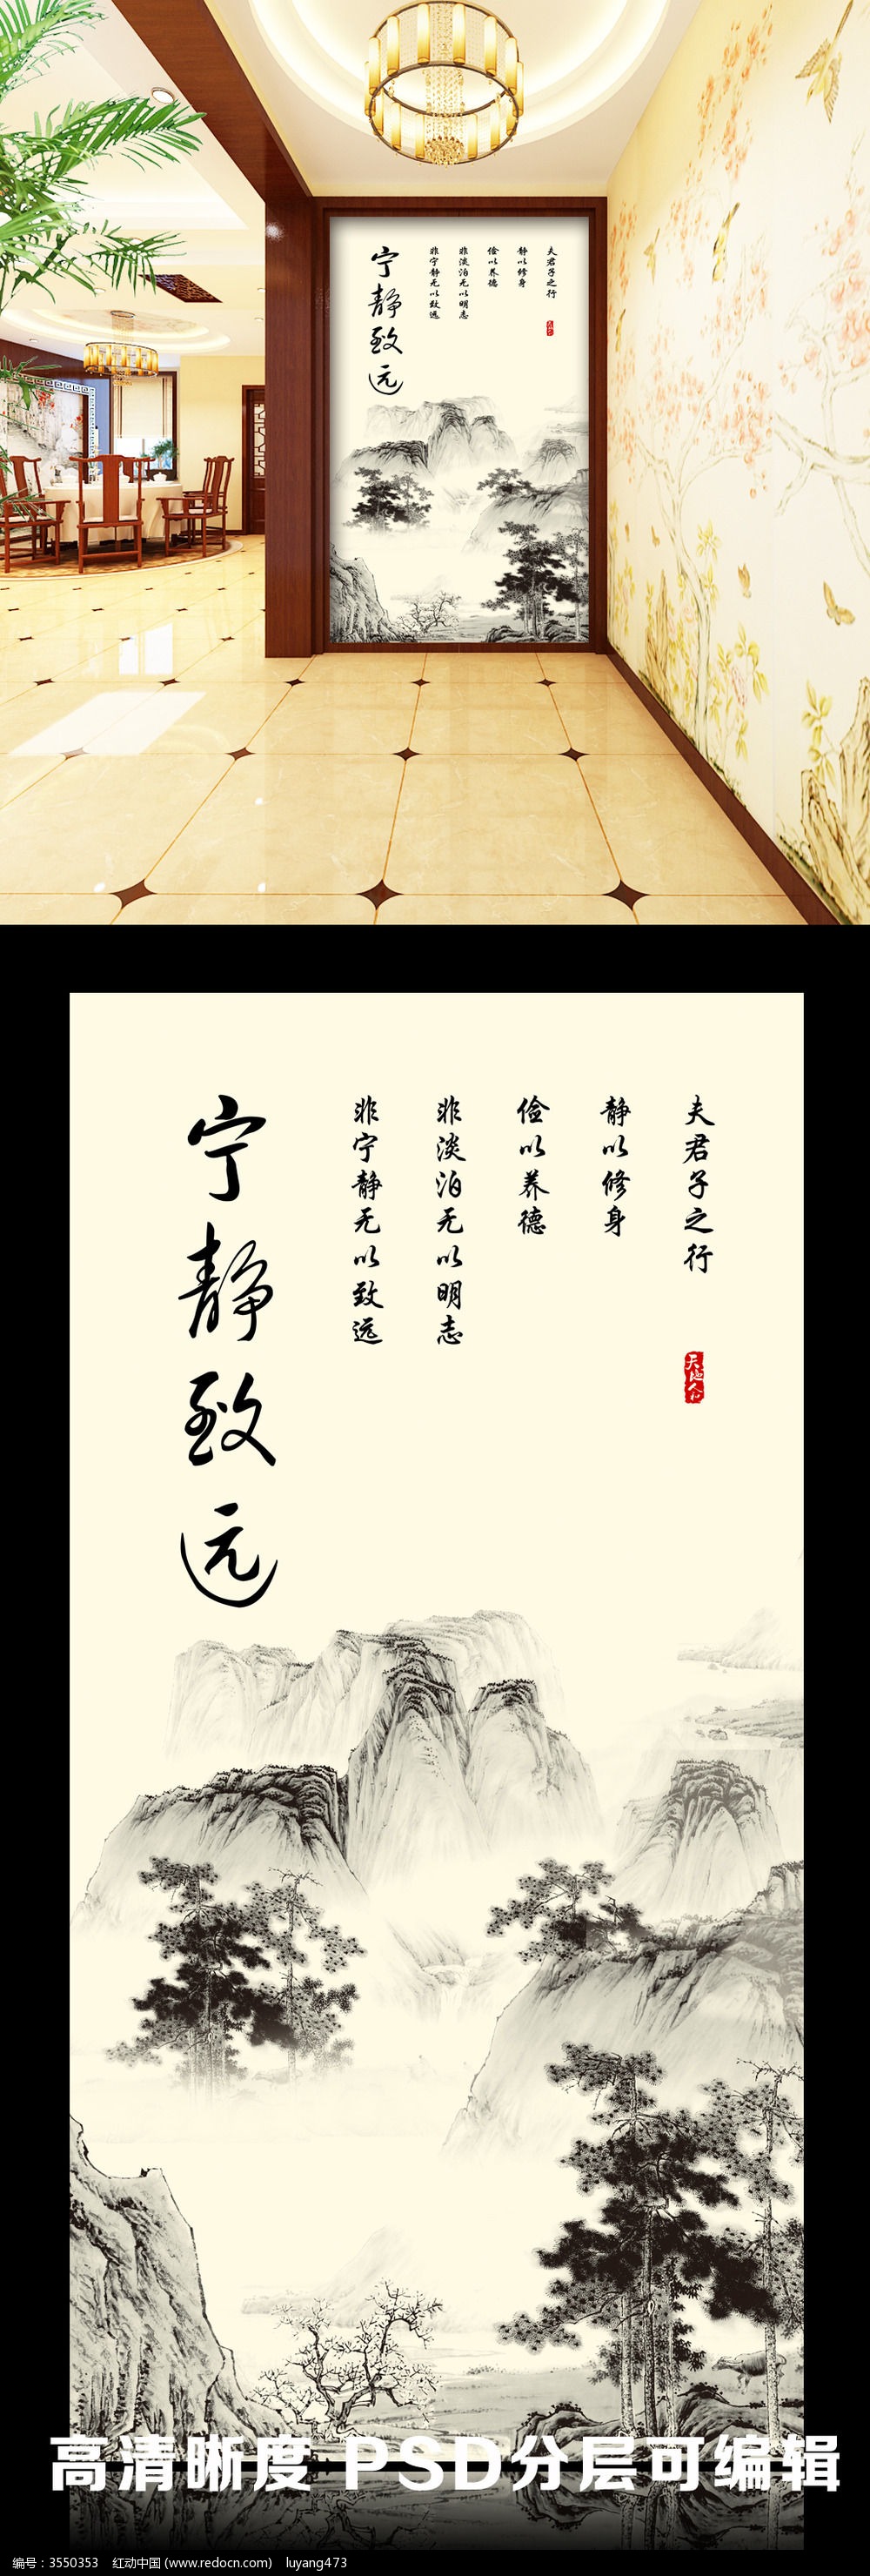 夫君子之行
静以修身
俭以养德
非淡泊无以明志
非宁静无以致远
宁静致远
夫君子之行
静以修身
俭以养德
非淡泊无以明志
非宁静无以致远
宁静致远
天地人和
高清晰度 PSD分层可编辑
编号：3550353 红动中国 (www.redocn.com) luyang473